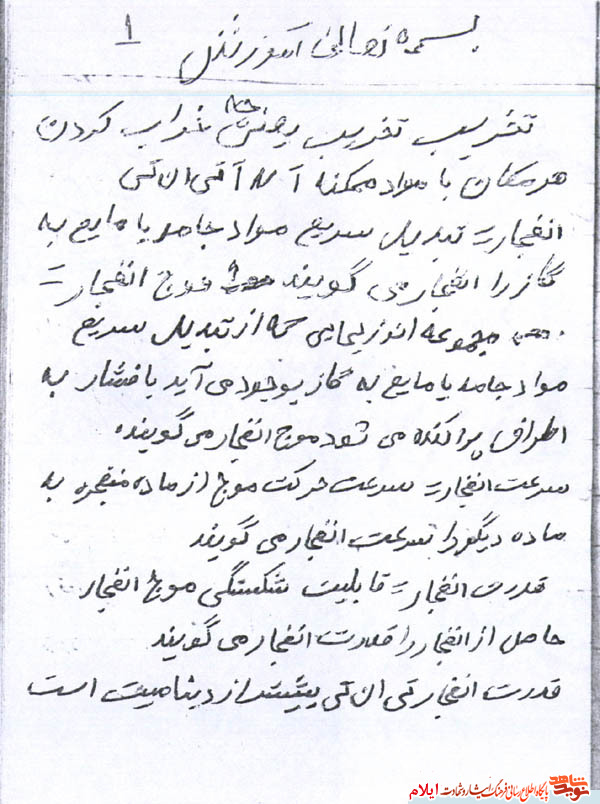 بسمه تعالی آموزشی ۱
تخریب تخریب یعنی خراب کردن
هر مکان با مواد ممکنه آ تی ان تی
انفجار = تبدیل سریع مواد جامد یا مایع به
گاز را انفجار می گویند موج انفجار =
مجموعه انرژیهایی که از تبدیل سریع
مواد جامد یا مایع به گاز بوجود می آید با فشار به
اطراف پراکنده می شود موج انفجار می گویند.
سرعت انفجار = سرعت حرکت موج از ماده منفجره به
ماده دیگر را سرعت انفجار می گویند
قدرت انفجار = قابلیت شکستگی موج انفجار
حاصل از انفجار را قدرت انفجار می گویند
قدرت انفجار تی ان تی بیشتر از دینامیت است
نوید شاهد پایگاه اطلاع رسانی فرهنگ ایثار و شهادت ایلام